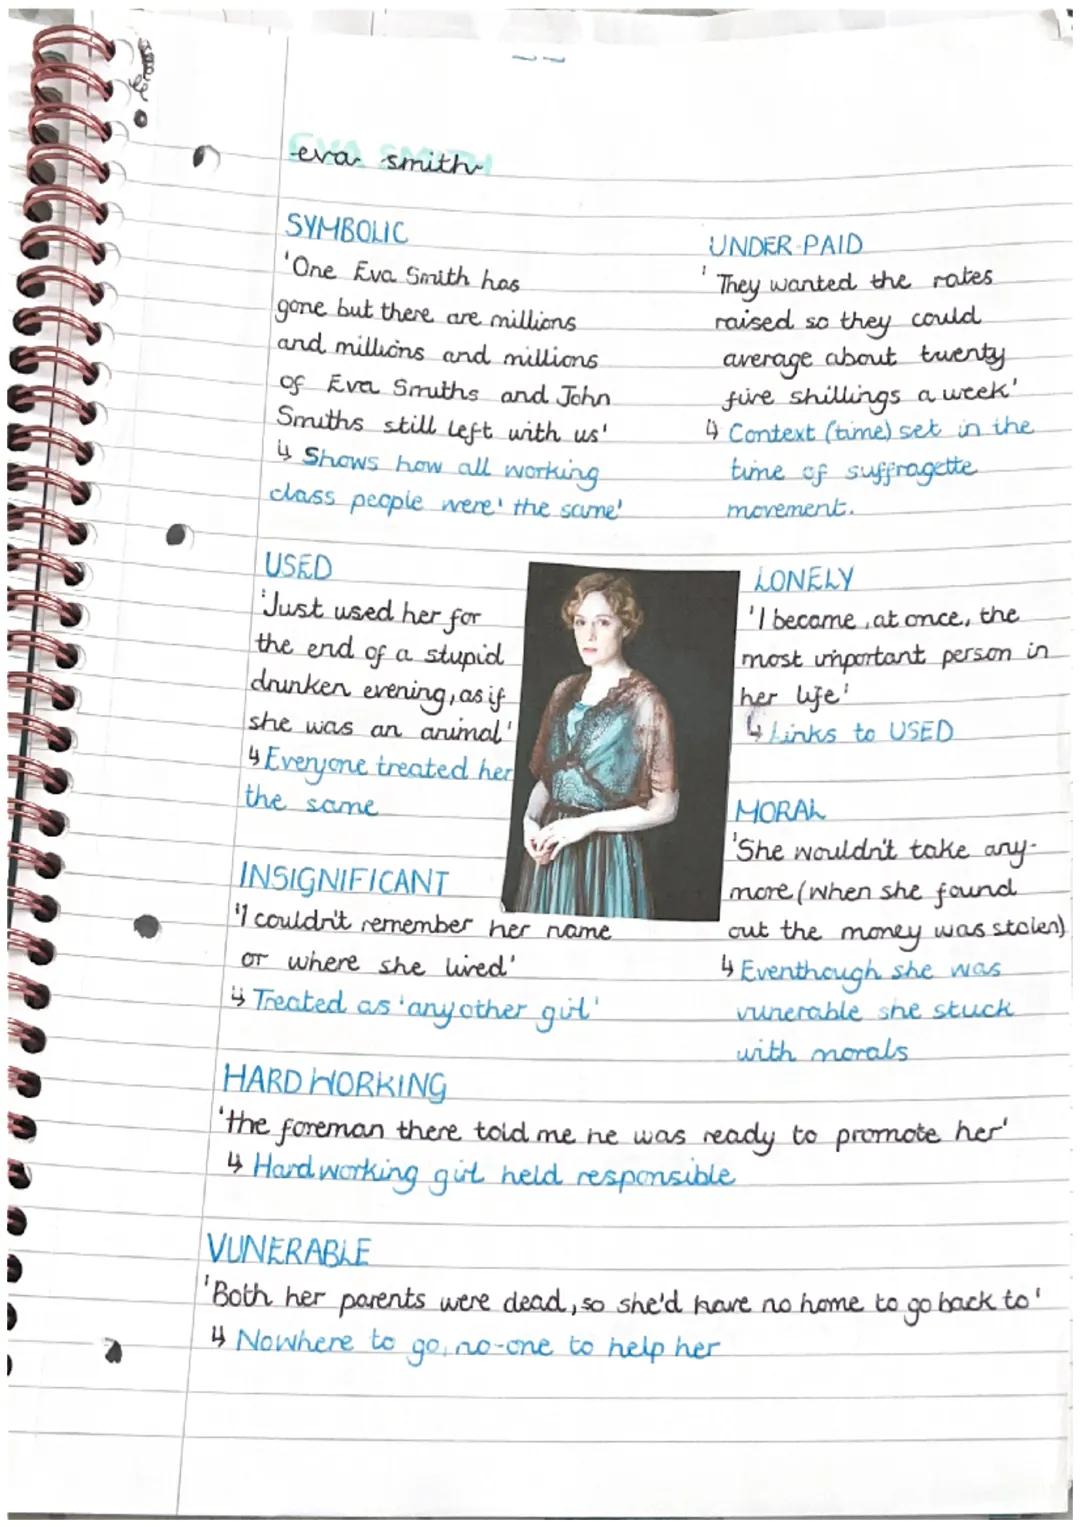 eva smith
SYMBOLIC
'One Eva Smith has
gone but there are millions
and millions and millions
of Eva Smiths and John
Smiths still left with us'
↳ Shows how all working
class people were 'the same'
UNDER-PAID
'They wanted the rates
raised so they could
average about twenty
five shillings a week'
↳ Context (time) set in the
time of suffragette
movement.
USED
'Just used her for
the end of a stupid
drunken evening, as if
she was an animal'
↳ Everyone treated her
the same
LONELY
'I became, at once, the
most important person in
her life'
↳ Links to USED
INSIGNIFICANT
'I couldn't remember her name
or where she lived'
↳ Treated as 'any other girl'
MORAL
'She wouldn't take any-
more (when she found
out the money was stolen)
↳ Eventhough she was
vunerable she stuck
with morals
HARD WORKING
'the foreman there told me he was ready to promote her'
↳ Hard working girl held responsible
VUNERABLE
'Both her parents were dead, so she'd have no home to go back to'
↳ Nowhere to go, no-one to help her